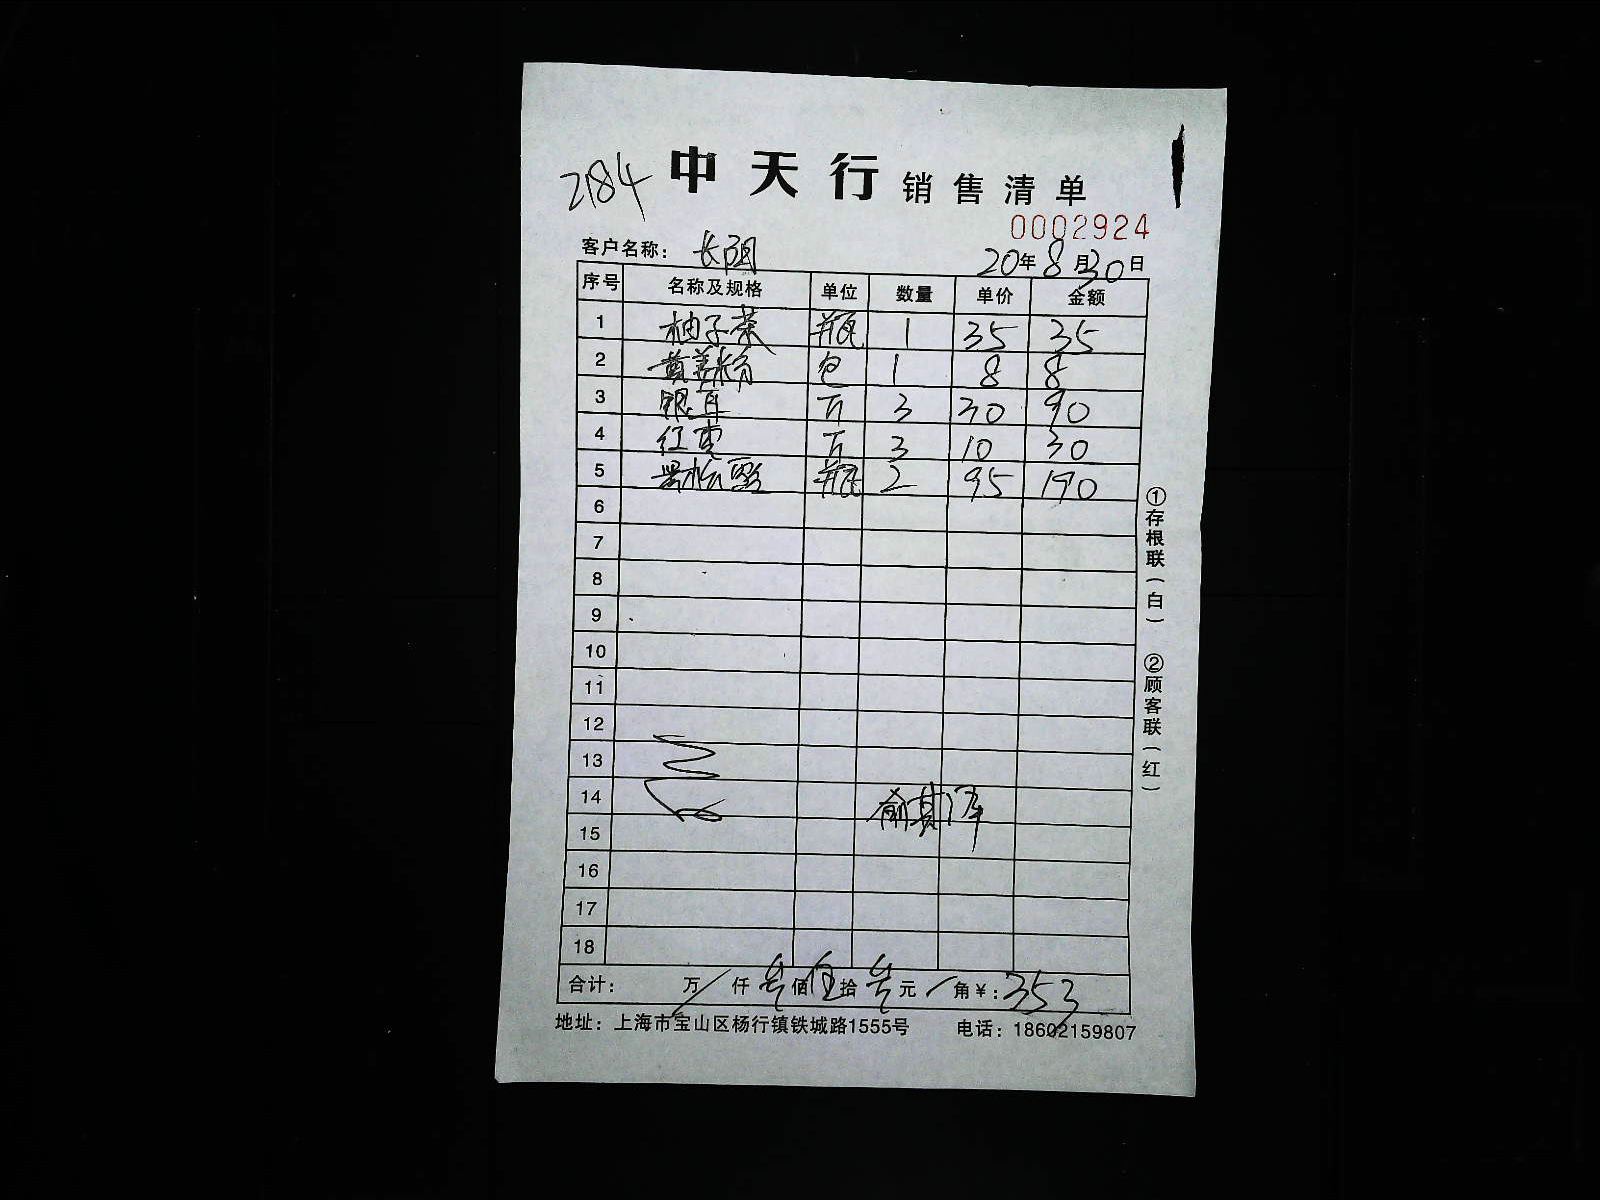 2184 中天行 销售清单
0002924
客户名称： 长阳 20年8月30日
序号 名称及规格 单位 数量 单价 金额
1 柚子茶 瓶 1 35 35
2 黄姜粉 包 1 8 8
3 银耳 斤 3 30 90
4 红枣 斤 3 10 30
5 黑松露 瓶 2 95 190
6
7
8
9
10
11
12
13
14
15
16
17
18
合计： 万 / 仟 叁 佰 伍 拾 叁 元 / 角 ¥：353
地址：上海市宝山区杨行镇铁城路1555号 电话：18602159807
①存根联（白） ②顾客联（红）